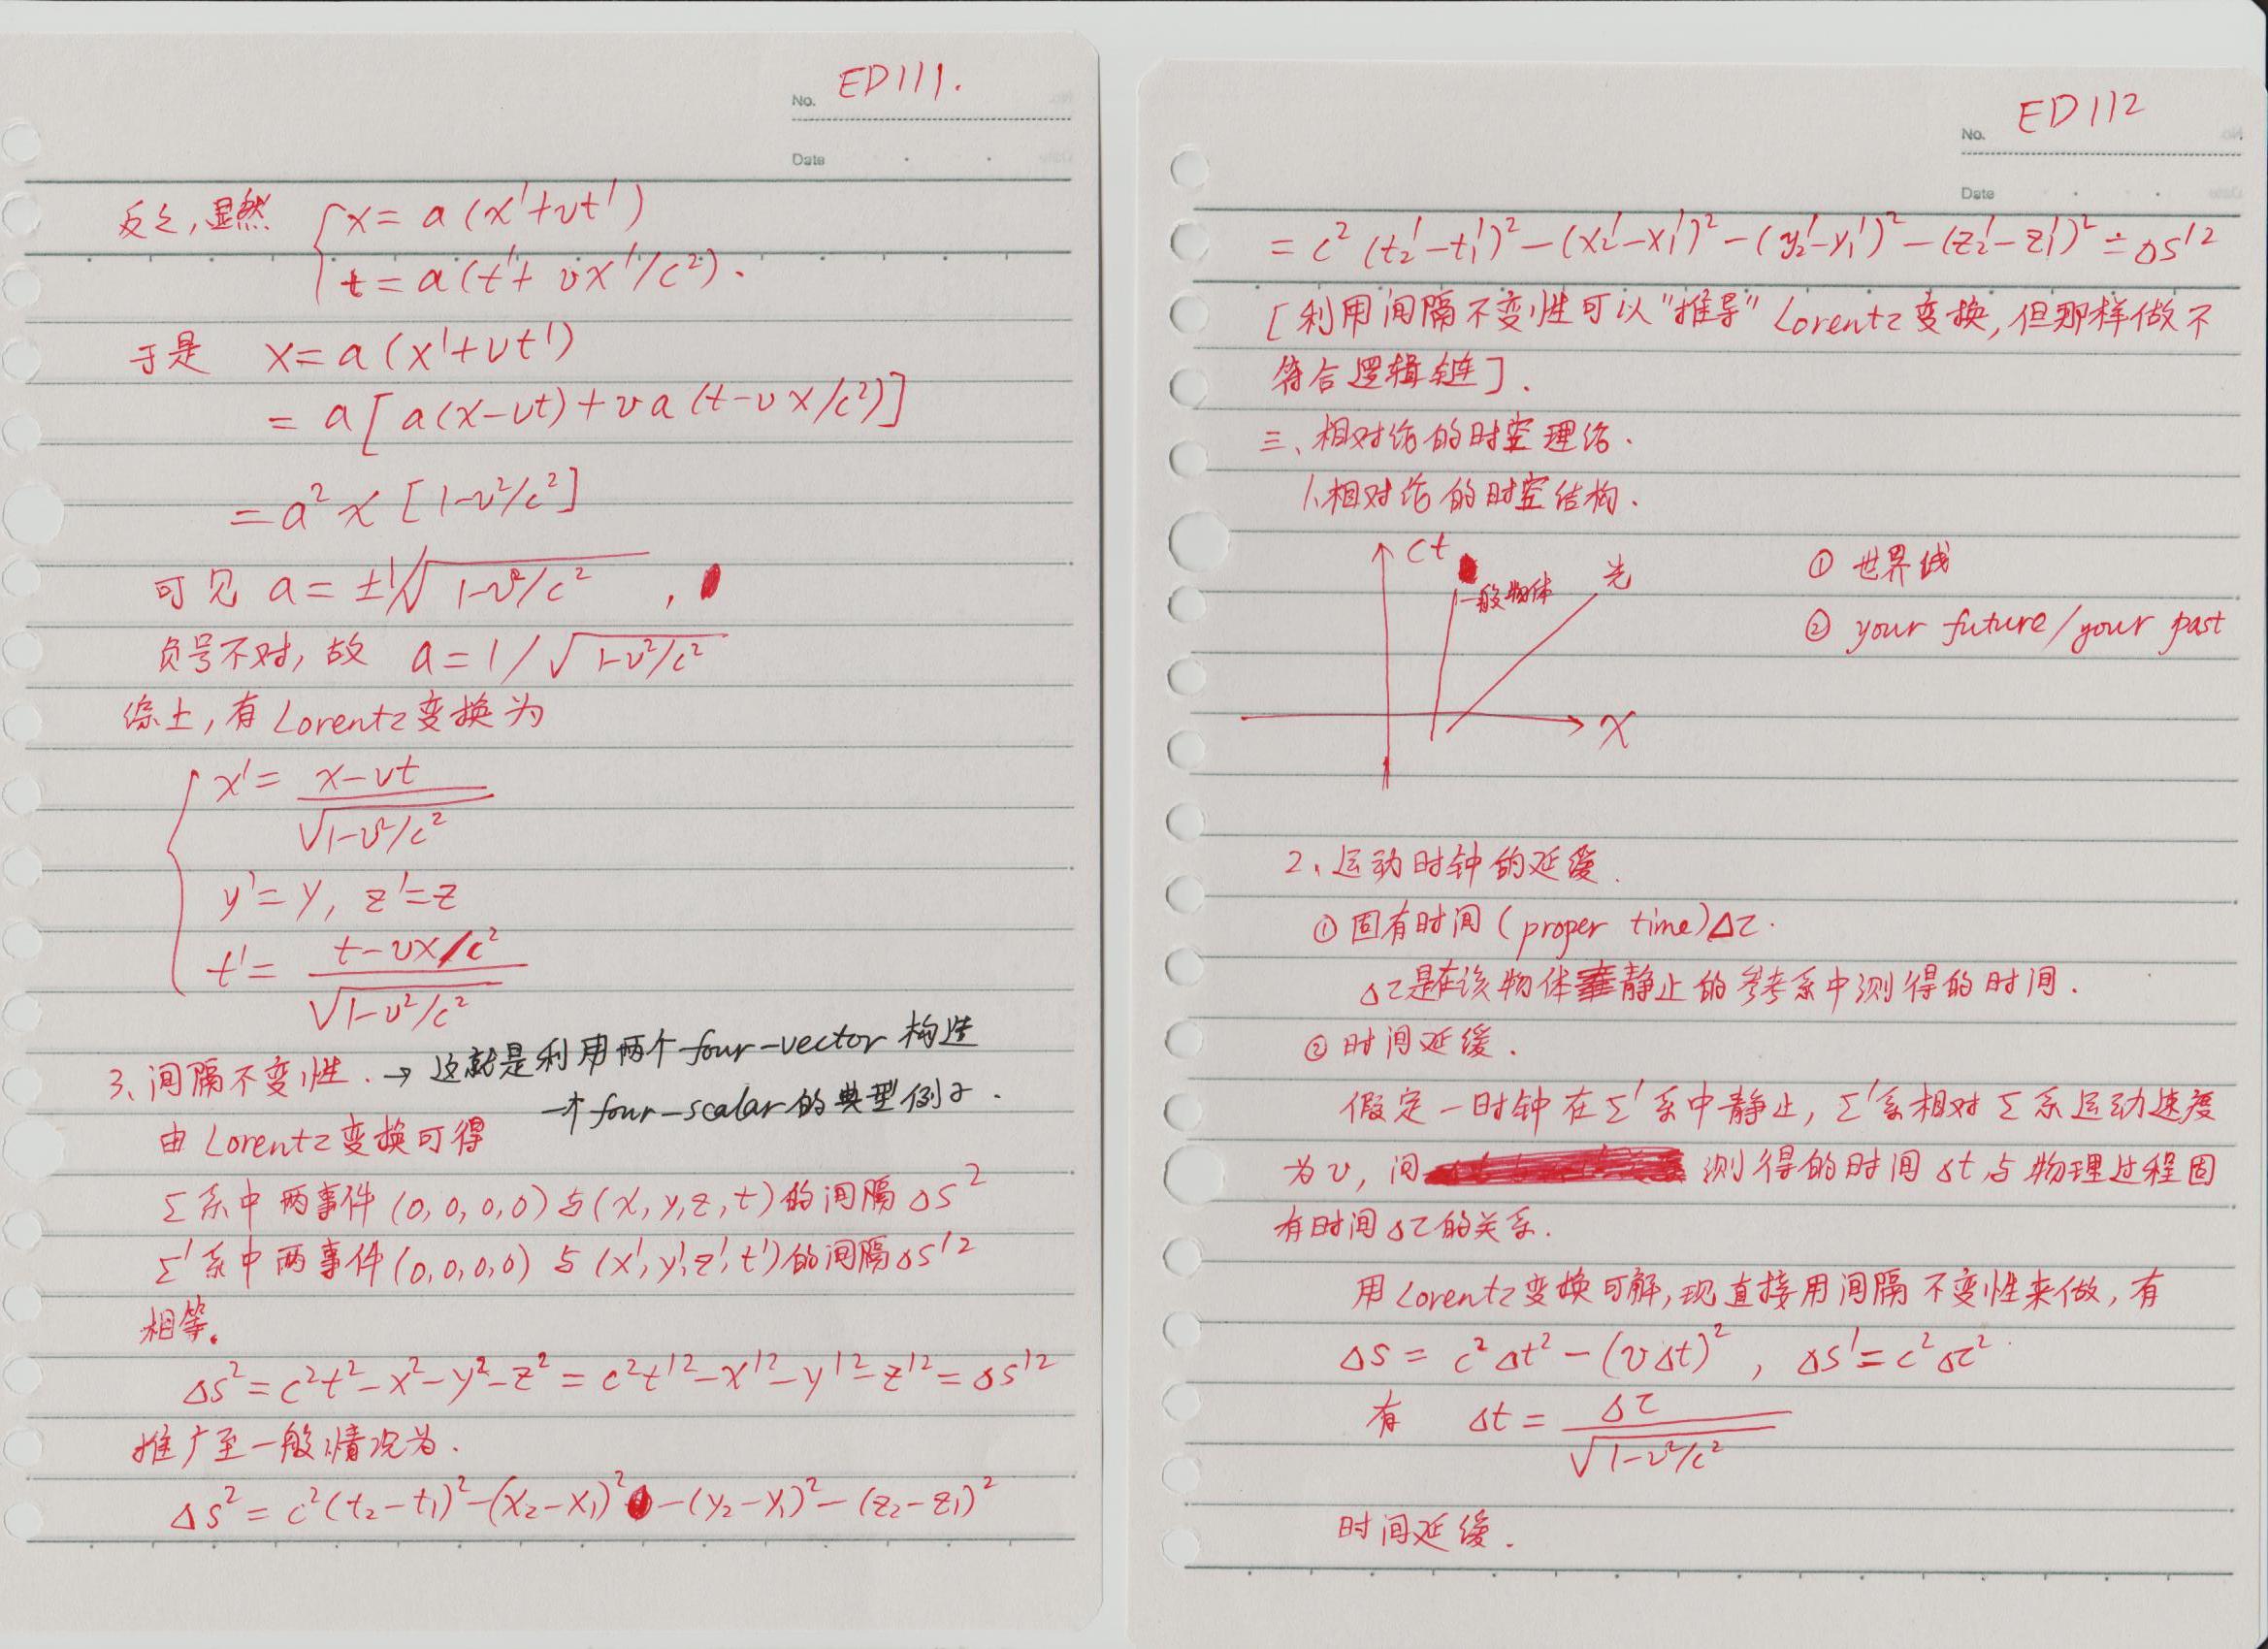 No. ED111.
Date
反之,显然 { x = a (x'+vt')
t = a(t'+ vx'/c²).
于是 x = a (x'+vt')
= a [ a(x-vt)+va (t-vx/c²)]
= a² x [1-v²/c²]
可见 a = ±1/√(1-v²/c²) ,
负号不对, 故 a = 1/√(1-v²/c²)
综上, 有 Lorentz 变换为
{ x' = (x-vt)/√(1-v²/c²)
y'=y, z'=z
t' = (t-vx/c²)/√(1-v²/c²)
3、间隔不变性. → 这就是利用两个 four-vector 构造
一个 four-scalar 的典型例子.
由 Lorentz 变换可得
Σ系中两事件 (0,0,0,0) 与 (x,y,z,t) 的间隔 Δs²
Σ'系中两事件 (0,0,0,0) 与 (x',y',z',t') 的间隔 Δs'²
相等。
Δs² = c²t²-x²-y²-z² = c²t'²-x'²-y'²-z'² = Δs'²
推广至一般情况为.
Δs² = c²(t₂-t₁)²-(x₂-x₁)²-(y₂-y₁)²-(z₂-z₁)²
No. ED112
Date
= c² (t₂'-t₁')²-(x₂'-x₁')²-(y₂'-y₁')²-(z₂'-z₁')² = Δs'²
[利用间隔不变性可以"推导" Lorentz 变换, 但那样做不
符合逻辑链].
三、相对论的时空理论.
1、相对论的时空结构.
ct
一般物体
光
x
① 世界线
② your future/your past
2、运动时钟的延缓.
① 固有时间 (proper time) Δτ.
Δτ是在该物体静止的参考系中测得的时间.
② 时间延缓.
假定一时钟在Σ'系中静止, Σ'系相对Σ系运动速度
为v, 问 测得的时间 Δt 与物理过程固
有时间 Δτ 的关系.
用 Lorentz 变换可解, 现直接用间隔不变性来做, 有
Δs = c²Δt²-(vΔt)², Δs' = c²Δτ².
有 Δt = Δτ/√(1-v²/c²)
时间延缓.